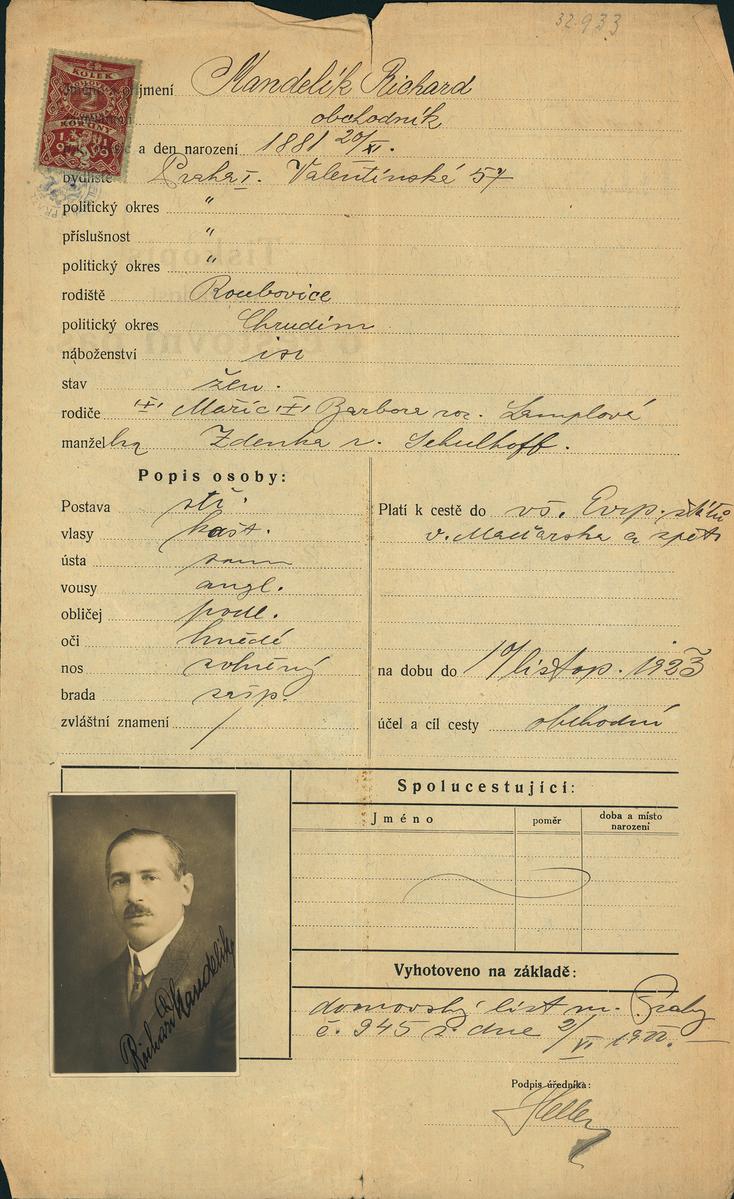 32.933
ČR
KOLEK
2
KORUNY
jmení Mandelík Richard
obchodník
a den narození 1881 20/XI.
bydliště Praha I. Valentinská 57
politický okres "
příslušnost "
politický okres "
rodiště Roubovice
politický okres Chrudim
náboženství isr
stav žen.
rodiče Mořic Barbora roz. Lamplová
manželka Zdenka r. Schulhoff.
Popis osoby:
Postava stř.
vlasy kašt.
ústa soum
vousy angl.
obličej podl.
oči hnědé
nos
brada zašp.
zvláštní znamení /
Platí k cestě do vš. Evrp. států
v. Maďarska a zpět
na dobu do 10/listop. 1923
účel a cíl cesty obchodní
Spolucestující:
Jméno poměr doba a místo narození
Richard Mandelík
Vyhotoveno na základě:
domovský list m. Prahy
č. 945 z dne 2/VI 1922.
Podpis úředníka:
Heller